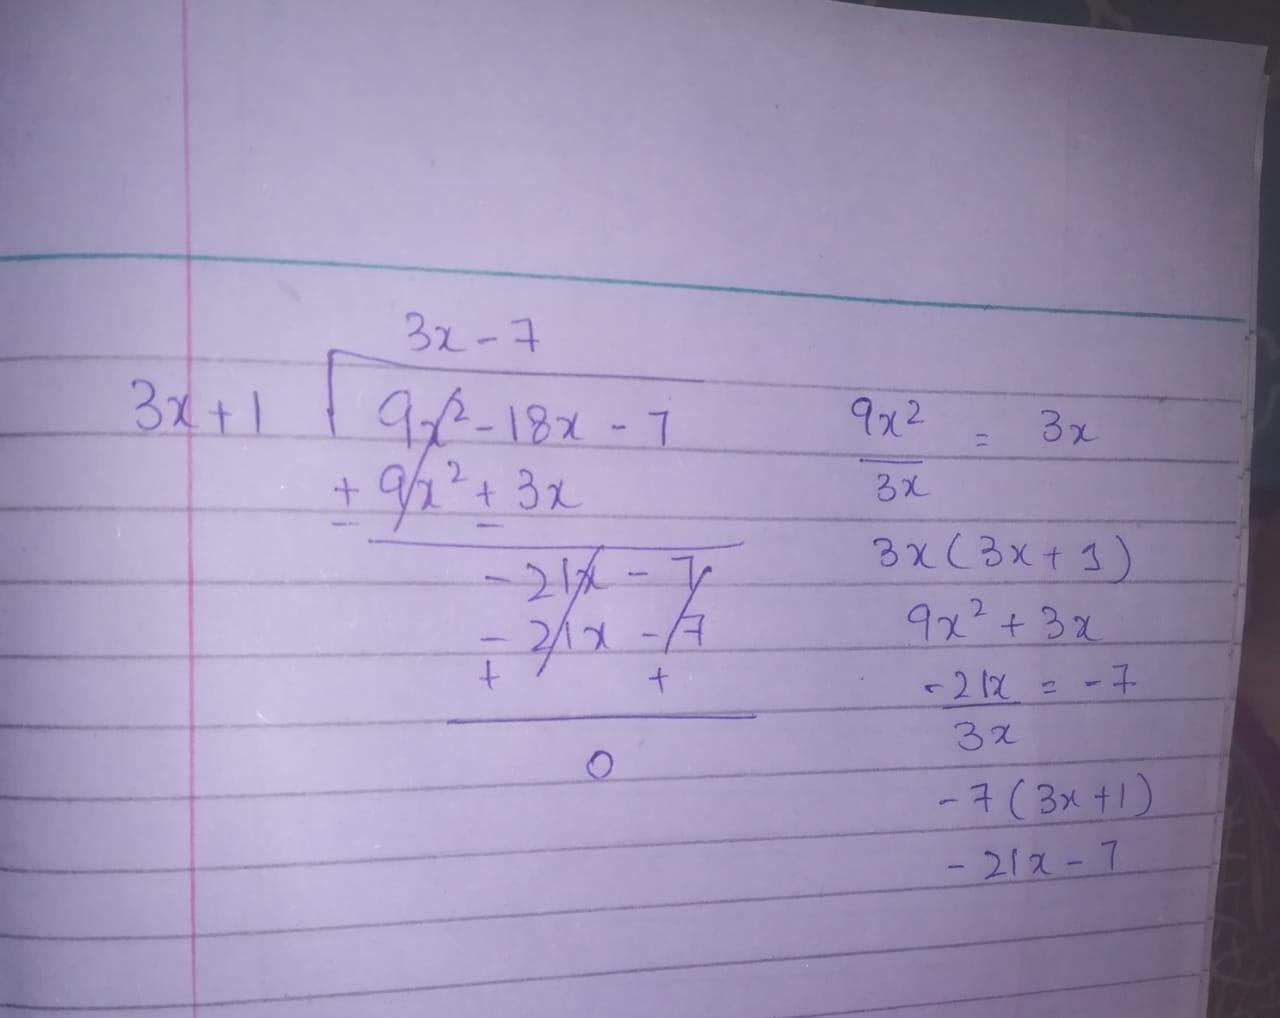 3x - 7
3x + 1 9x² - 18x - 7
+ 9x² + 3x
- -
- 21x - 7
- 21x - 7
+ +
0
9x² = 3x
3x
3x (3x + 1)
9x² + 3x
- 21x = - 7
3x
- 7 (3x + 1)
- 21x - 7